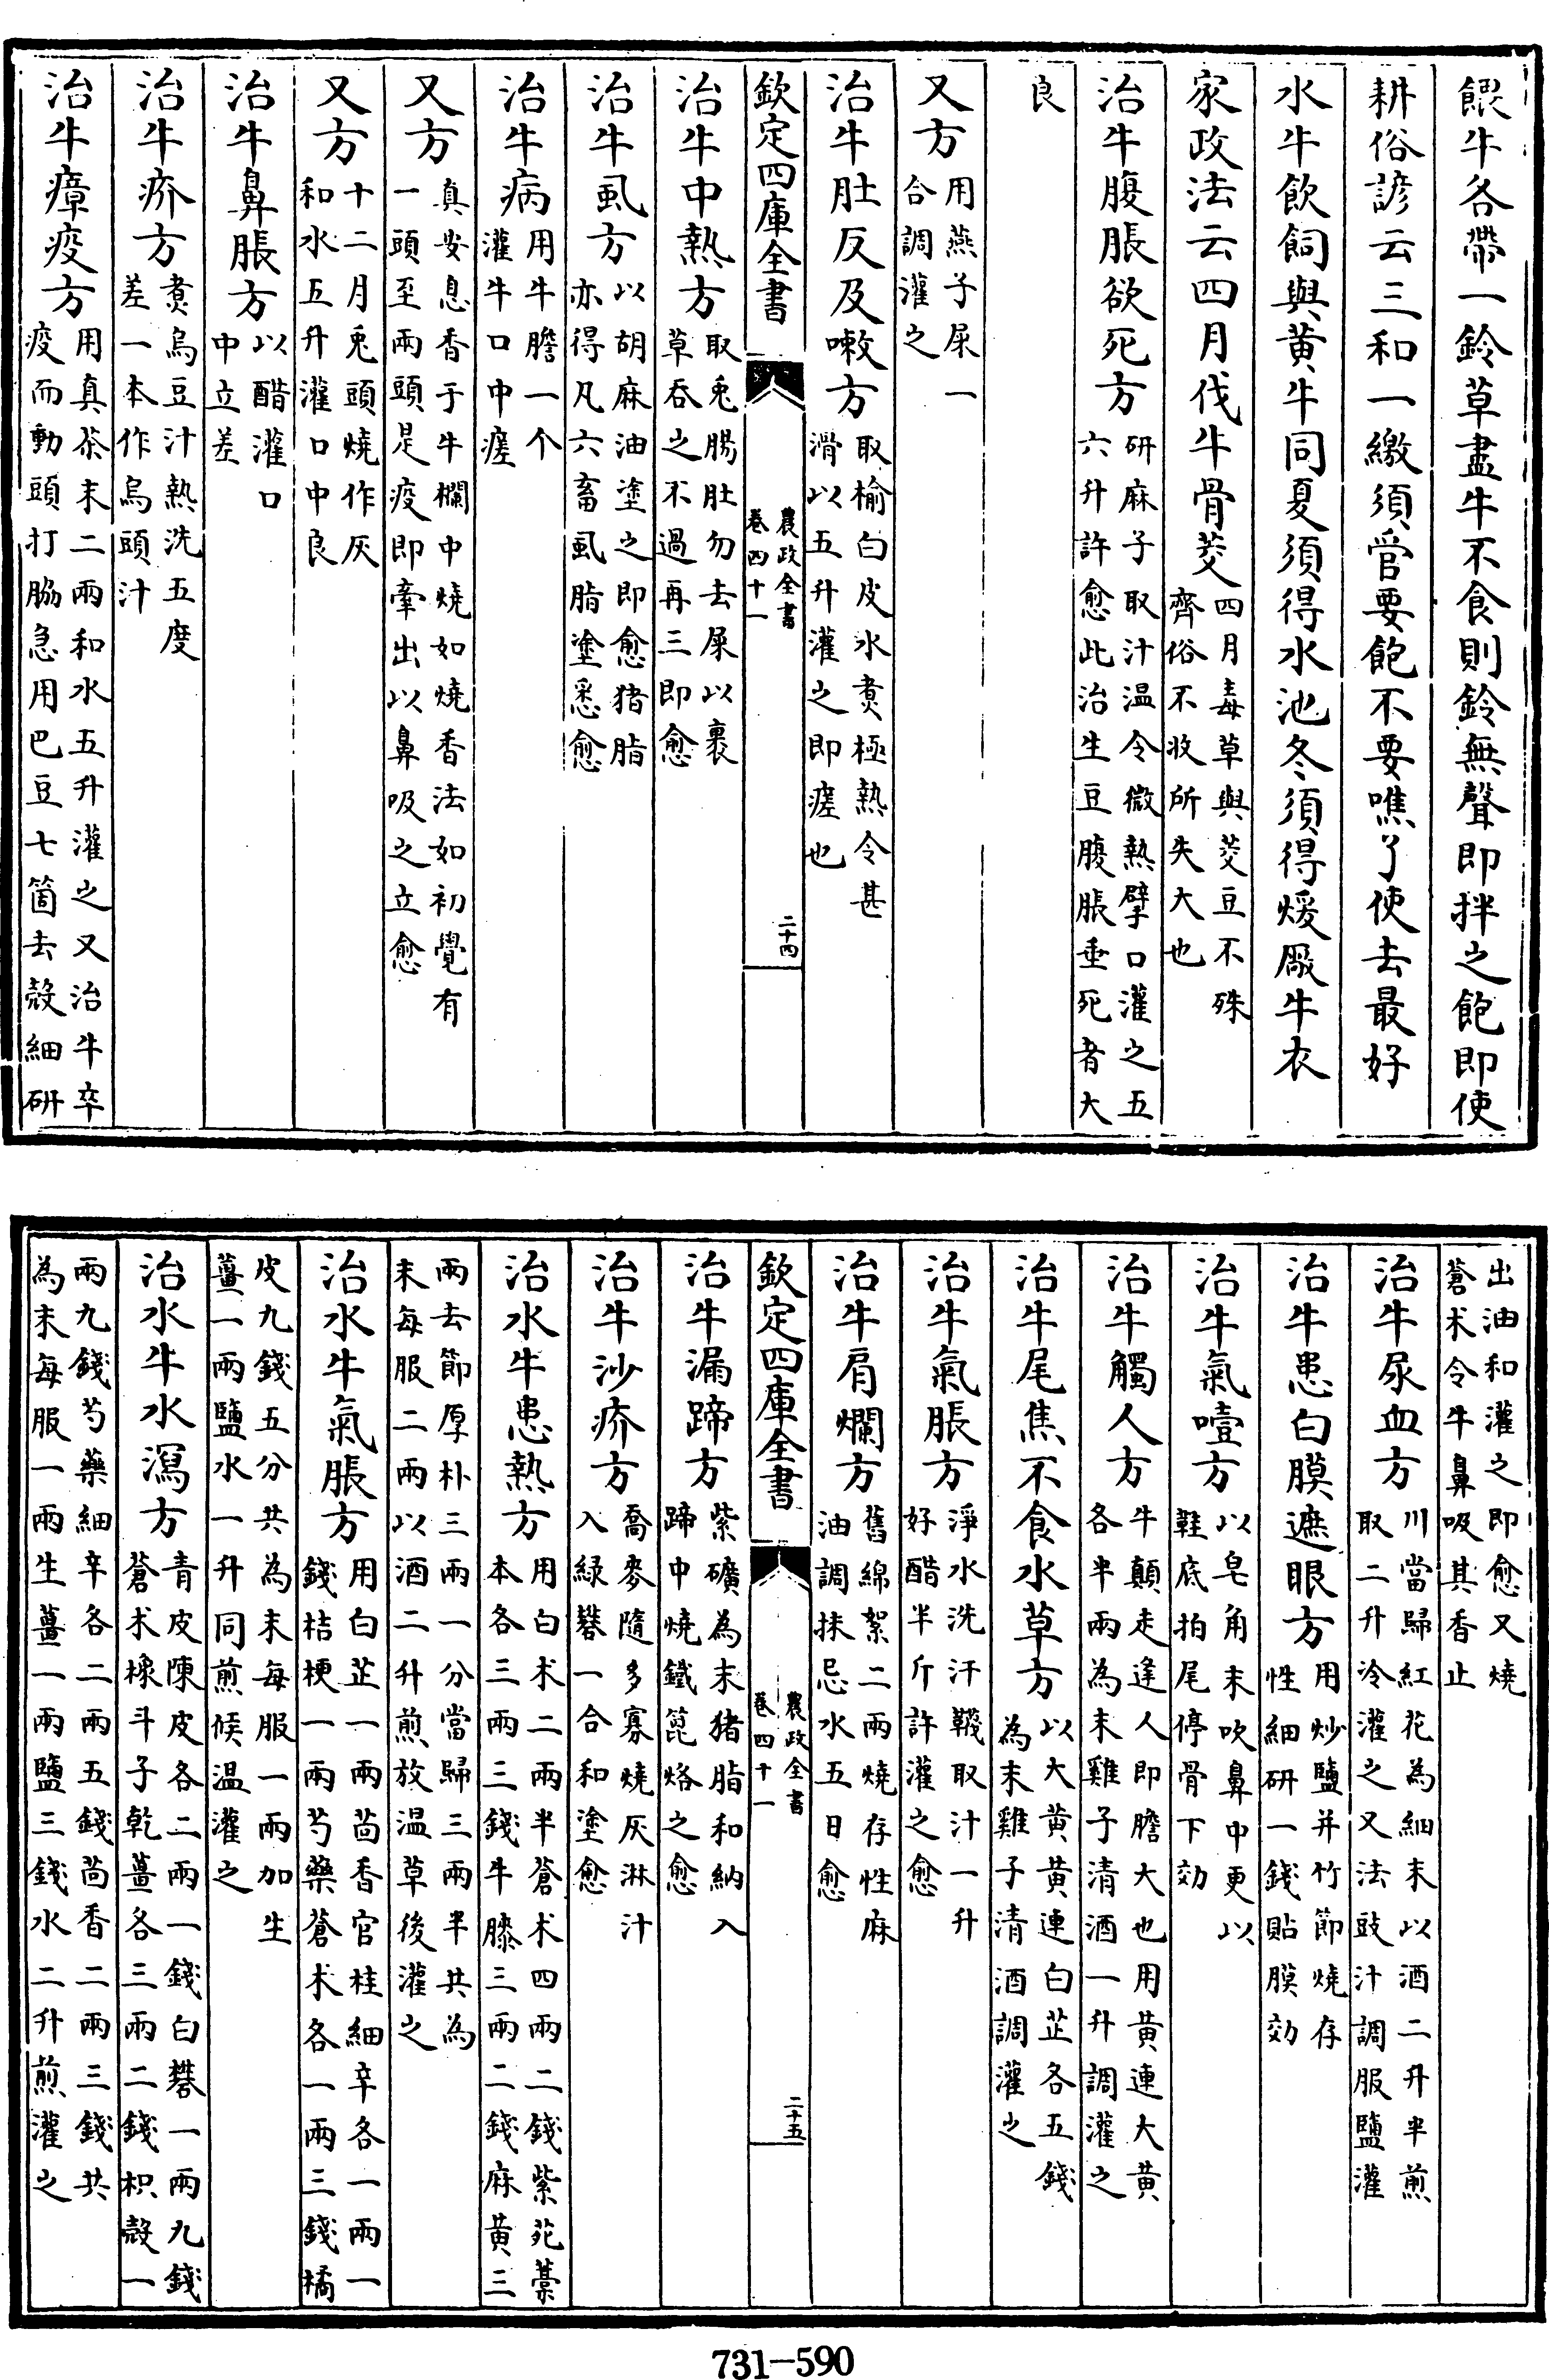 餵牛各帶一鈴草盡牛不食則鈴無聲即拌之飽即使
耕俗諺云三和一繳須管要飽不要噍了使去最好
水牛飲飼與黄牛同夏須得水池冬須得煖厰牛衣
家政法云四月伐牛骨茭四月毒草與茭豆不殊
齊俗不收所失大也
治牛腹脹欲死方研麻子取汁温令微熱擘口灌之五
六升許愈此治生豆腹脹垂死者大
良
又方用燕子屎一
合調灌之
治牛肚反及嗽方取榆白皮水煑極熱令甚
滑以五升灌之即瘥也
欽定四庫全書
農政全書
卷四十一
二十四
治牛中熱方取兎腸肚勿去屎以裹
草吞之不過再三即愈
治牛虱方以胡麻油塗之即愈猪脂
亦得凡六畜虱脂塗悉愈
治牛病用牛膽一个
灌牛口中瘥
又方真安息香于牛欄中燒如燒香法如初覺有
一頭至兩頭是疫即牽出以鼻吸之立愈
又方十二月兎頭燒作灰
和水五升灌口中良
治牛鼻脹方以醋灌口
中立差
治牛疥方煑烏豆汁熱洗五度
差一本作烏頭汁
治牛瘴疫方用真茶末二兩和水五升灌之又治牛卒
疫而動頭打脇急用巴豆七箇去殼細研
出油和灌之即愈又燒
蒼术令牛鼻吸其香止
治牛尿血方川當歸紅花為細末以酒二升半煎
取二升冷灌之又法豉汁調服鹽灌
治牛患白膜遮眼方用炒鹽并竹節燒存
性細研一錢貼膜効
治牛氣噎方以皂角末吹鼻中更以
鞋底拍尾停骨下効
治牛觸人方牛顛走逢人即膽大也用黄連大黄
各半兩為末雞子清酒一升調灌之
治牛尾焦不食水草方以大黄黄連白芷各五錢
為末雞子清酒調灌之
治牛氣脹方淨水洗汗韈取汁一升
好醋半斤許灌之愈
治牛肩爛方舊綿絮二兩燒存性麻
油調抹忌水五日愈
欽定四庫全書
農政全書
卷四十一
二十五
治牛漏蹄方紫礦為末猪脂和納入
蹄中燒鐵篦烙之愈
治牛沙疥方喬麥隨多寡燒灰淋汁
入緑礬一合和塗愈
治水牛患熱方用白术二兩半蒼术四兩二錢紫苑藁
本各三兩三錢牛膝三兩二錢麻黄三
兩去節厚朴三兩一分當歸三兩半共為
末每服二兩以酒二升煎放温草後灌之
治水牛氣脹方用白芷一兩茴香官桂細辛各一兩一
錢桔梗一兩芍藥蒼术各一兩三錢橘
皮九錢五分共為末每服一兩加生
薑一兩鹽水一升同煎候温灌之
治水牛水瀉方青皮陳皮各二兩一錢白礬一兩九錢
蒼术橡斗子乾薑各三兩二錢枳殼一
兩九錢芍藥細辛各二兩五錢茴香二兩三錢共
為末每服一兩生薑一兩鹽三錢水二升煎灌之
731—590